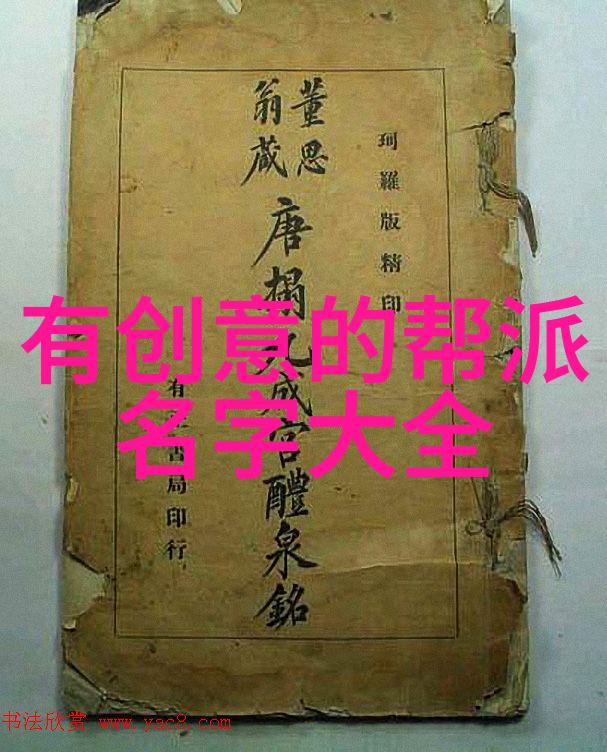 有创意的帮派
名字大全
珂羅版精印
董思
翁藏
唐搨九成宮醴泉銘
有 書局印行
书法欣赏 www.yac8.com